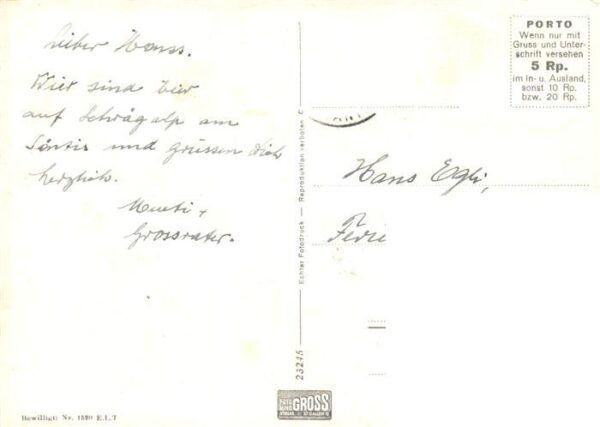 Lieber Hanss.
Wier sind hier
auf Schwägalp am
Säntis und grüssen Dich
herzlich.
Mueti +
Grossvater.
Bewilligt: Nr. 1590 E.L.T
23245
Echter Fotodruck — Reproduktion verboten
GROSS
PORTO
Wenn nur mit
Gruss und Unter-
schrift versehen
5 Rp.
im In- u. Ausland,
sonst 10 Rp.
bzw. 20 Rp.
Hans Egli,
Ferie